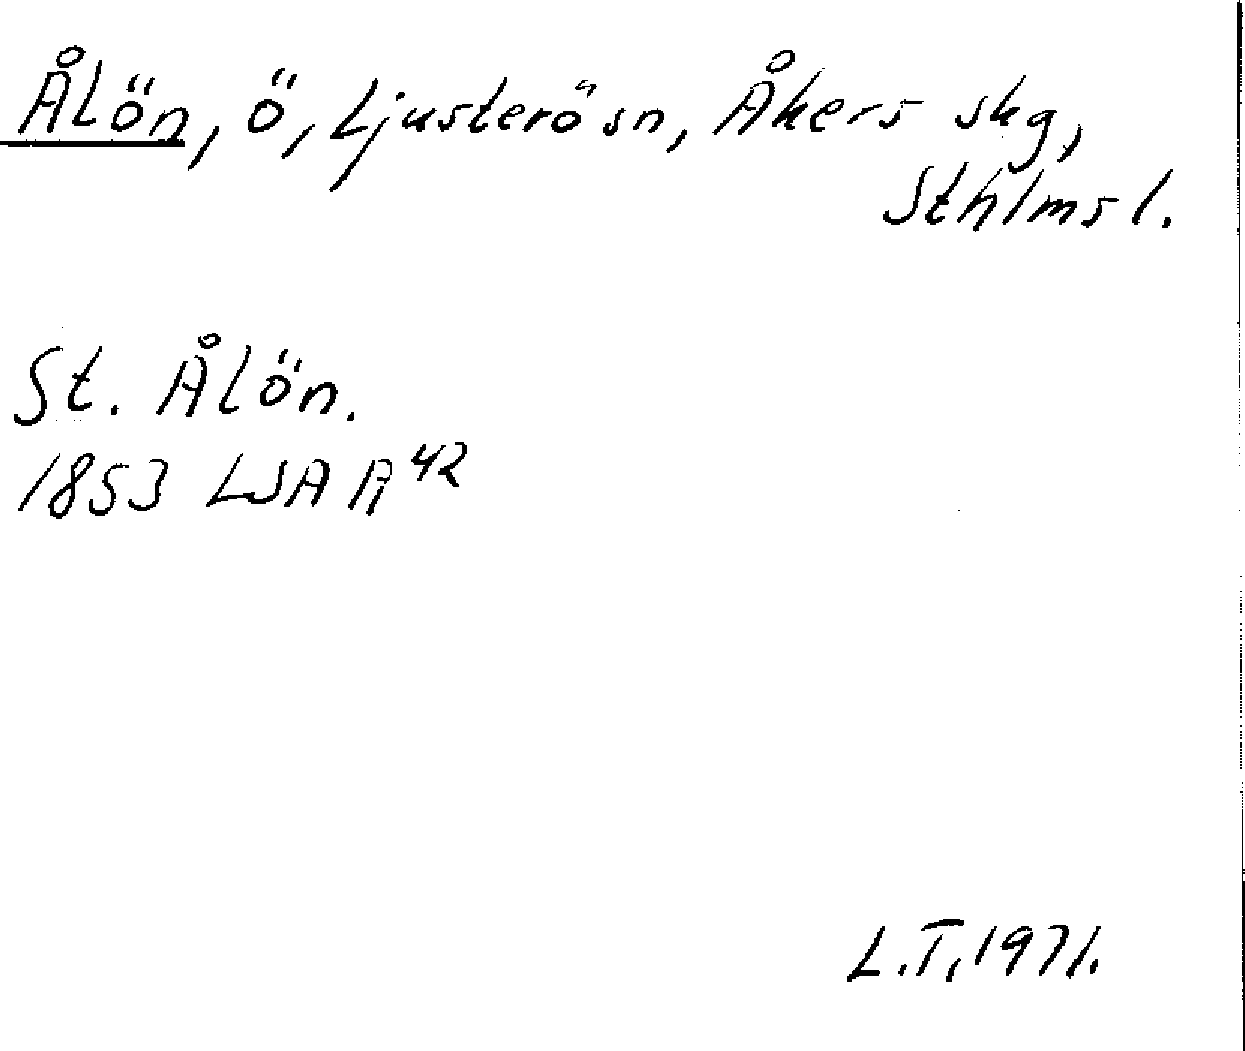 Ålön, ö, Ljusterö sn, Åkers skg,
Sthlms l.
St. Ålön.
1853 LSA A 42
L.T. 1971.